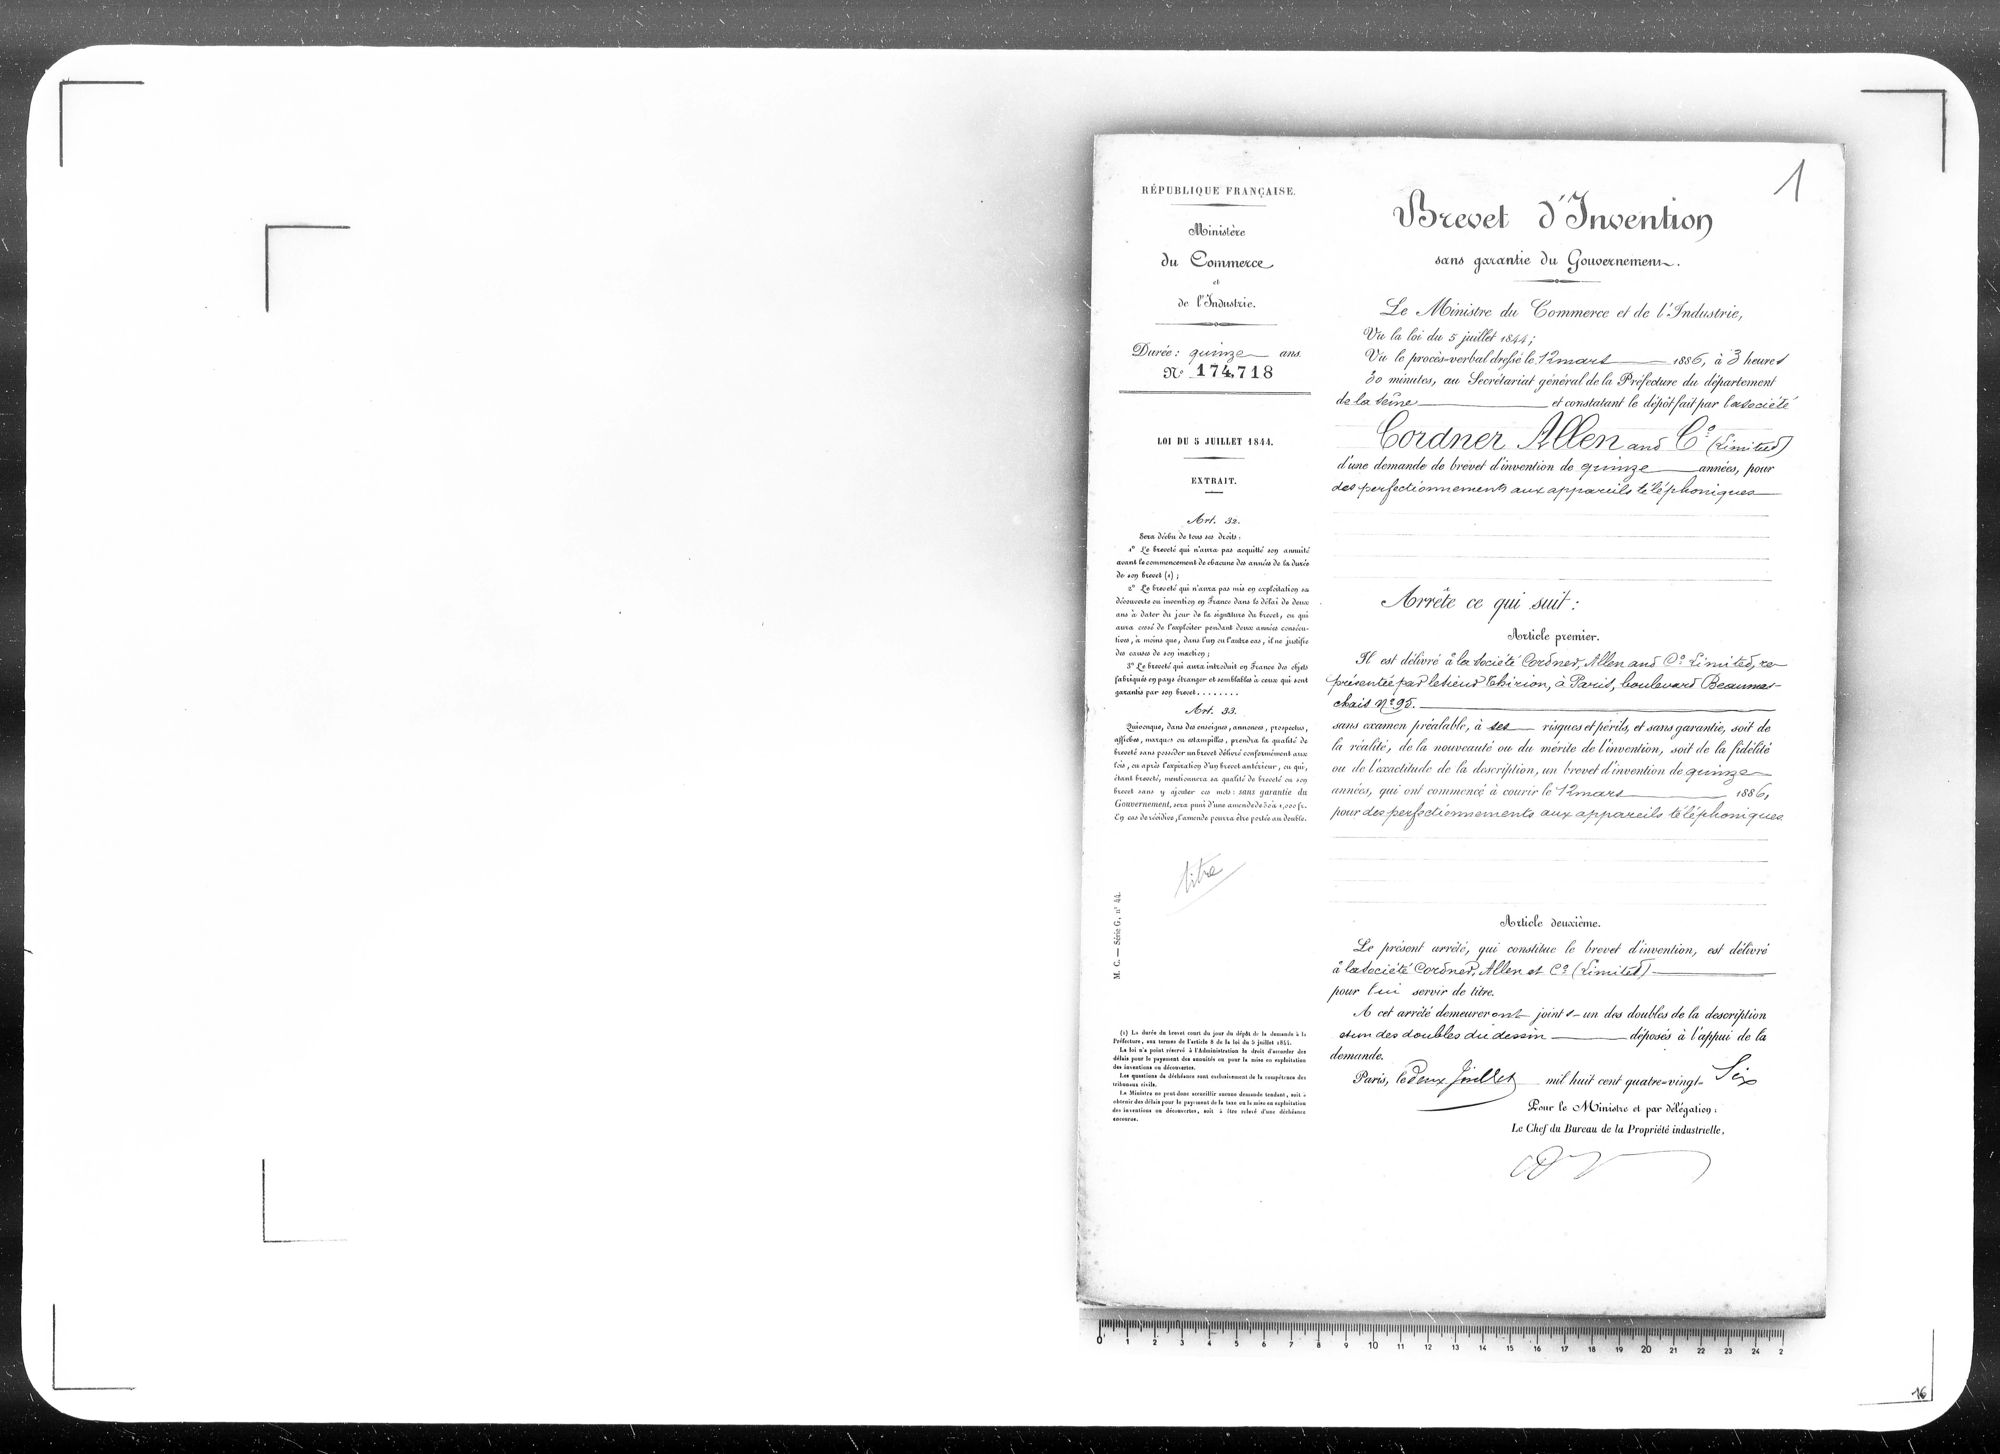 RÉPUBLIQUE FRANÇAISE.
Ministère
du Commerce
et
de l'Industrie.
Durée: quinze ans.
N° 174,718
LOI DU 5 JUILLET 1844.
EXTRAIT.
Art. 32.
Sera déchu de tous ses droits:
1° Le breveté qui n'aura pas acquitté son annuité
avant le commencement de chacune des années de la durée
de son brevet (1);
2° Le breveté qui n'aura pas mis en exploitation sa
découverte ou invention en France dans le délai de deux
ans à dater du jour de la signature du brevet, ou qui
aura cessé de l'exploiter pendant deux années consécu-
tives, à moins que, dans l'un ou l'autre cas, il ne justifie
des causes de son inaction;
3° Le breveté qui aura introduit en France des objets
fabriqués en pays étranger et semblables à ceux qui sont
garantis par son brevet........
Art. 33.
Quiconque, dans des enseignes, annonces, prospectus,
affiches, marques ou estampilles, prendra la qualité de
breveté sans posséder un brevet délivré conformément aux
lois, ou après l'expiration d'un brevet antérieur, ou qui,
étant breveté, mentionnera sa qualité de breveté ou son
brevet sans y ajouter ces mots: sans garantie du
Gouvernement, sera puni d'une amende de 50 à 1,000 fr.
En cas de récidive, l'amende pourra être portée au double.
titre
M. C. — Série G, n° 44.
(1) La durée du brevet court du jour du dépôt de la demande à la
Préfecture, aux termes de l'article 8 de la loi du 5 juillet 1844.
La loi n'a point réservé à l'Administration le droit d'accorder des
délais pour le payement des annuités ou pour la mise en exploitation
des inventions ou découvertes.
Les questions de déchéance sont exclusivement de la compétence des
tribunaux civils.
Le Ministre ne peut donc accueillir aucune demande tendant, soit à
obtenir des délais pour le payement de la taxe ou la mise en exploitation
des inventions ou découvertes, soit à être relevé d'une déchéance
encourue.
1
Brevet d'Invention
sans garantie du Gouvernement.
Le Ministre du Commerce et de l'Industrie,
Vu la loi du 5 juillet 1844;
Vu le procès-verbal dressé le 12 mars 1886, à 3 heures
30 minutes, au Secrétariat général de la Préfecture du département
de la Seine et constatant le dépôt fait par la Société
Cordner Allen and C° (Limited)
d'une demande de brevet d'invention de quinze années, pour
des perfectionnements aux appareils téléphoniques
Arrête ce qui suit:
Article premier.
Il est délivré à la Société Cordner, Allen and C° Limited, re-
présentée par le sieur Thirion, à Paris, boulevard Beaumar-
chais N° 95.
sans examen préalable, à ses risques et périls, et sans garantie, soit de
la réalité, de la nouveauté ou du mérite de l'invention, soit de la fidélité
ou de l'exactitude de la description, un brevet d'invention de quinze
années, qui ont commencé à courir le 12 mars 1886,
pour des perfectionnements aux appareils téléphoniques
Article deuxième.
Le présent arrêté, qui constitue le brevet d'invention, est délivré
à la Société Cordner, Allen et C° (Limited)
pour lui servir de titre.
A cet arrêté demeureront joints un des doubles de la description
et un des doubles du dessin déposés à l'appui de la
demande.
Paris, le deux Juillet mil huit cent quatre-vingt- Six
Pour le Ministre et par délégation:
Le Chef du Bureau de la Propriété industrielle,
0 1 2 3 4 5 6 7 8 9 10 11 12 13 14 15 16 17 18 19 20 21 22 23 24 2
16